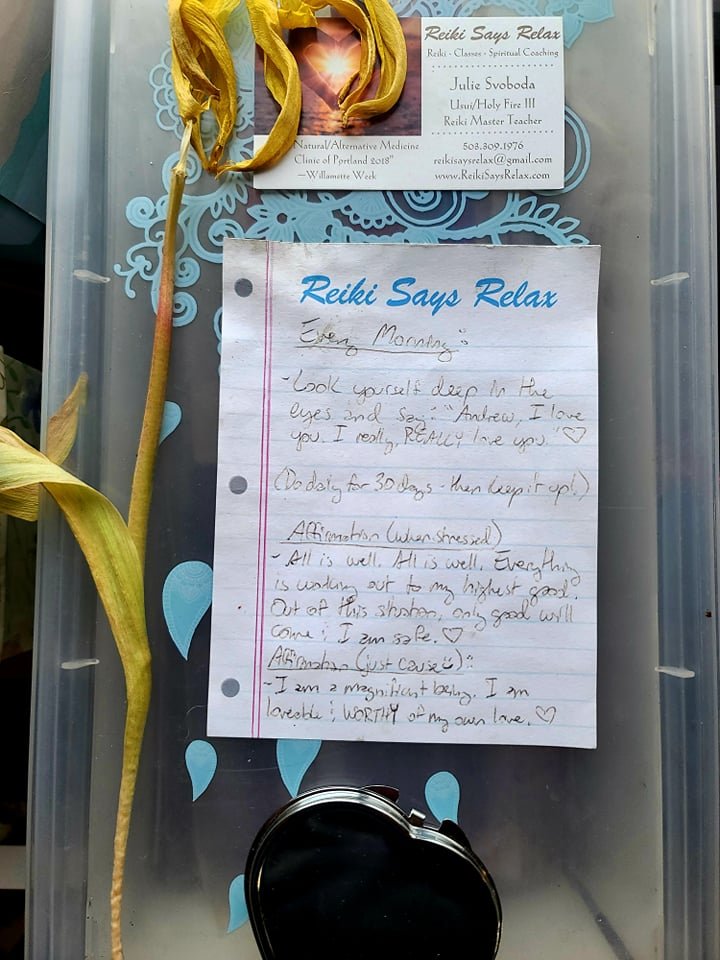 Reiki Says Relax
Reiki - Classes - Spiritual Coaching
Julie Svoboda
Usui/Holy Fire III
Reiki Master Teacher
Natural/Alternative Medicine
Clinic of Portland 2018"
—Willamette Week
503.309.1976
reikisaysrelax@gmail.com
www.ReikiSaysRelax.com
Reiki Says Relax
Every Morning:
-Look yourself deep in the
eyes and say: "Andrew, I love
you. I really, REALLY love you." ♡
(Do daily for 30 days - then keep it up!)
Affirmation (when stressed)
- All is well. All is well. Everything
is working out to my highest good.
Out of this situation, only good will
come; I am safe. ♡
Affirmation (just cause☺):
-I am a magnificant being. I am
loveable; WORTHY of my own love. ♡